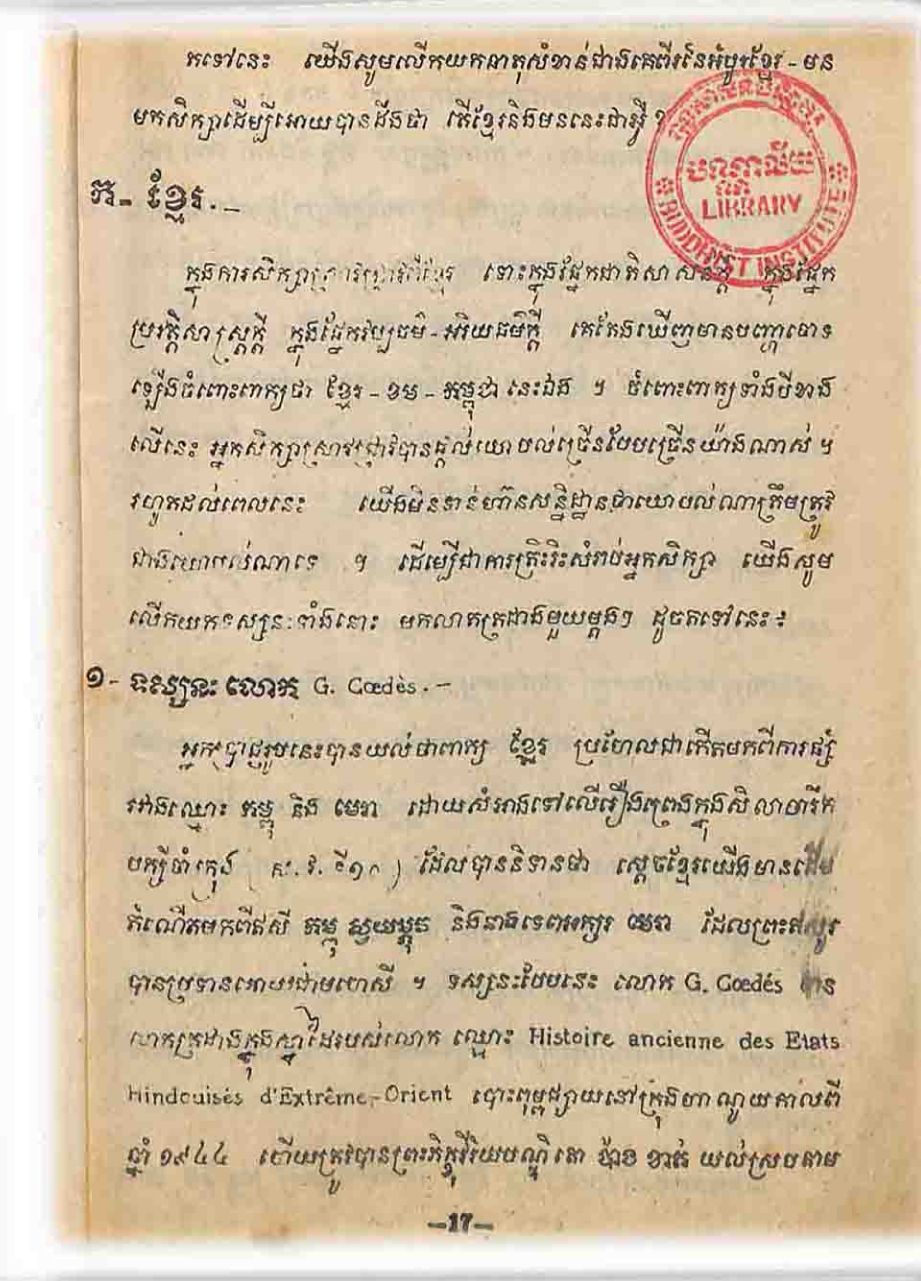 តទៅនេះ យើងសូមលើកយកធាតុសំខាន់ជាងគេពីរនៃអំបូរខ្មែរ - មន
មកសិក្សាដើម្បីអោយបានដឹងថា តើខ្មែរនិងមននេះជាអ្វី ?
បណ្ណាល័យ
LIBRARY
BUDDHIST INSTITUTE
ក - ខ្មែរ . _
ក្នុងការសិក្សាស្រាវជ្រាវពីខ្មែរ ទោះក្នុងផ្នែកជាតិសាសន៍ក្ដី ក្នុងផ្នែក
ប្រវត្តិសាស្ត្រក្ដី ក្នុងផ្នែកវប្បធម៌ - អរិយធម៌ក្ដី គេតែងឃើញមានបញ្ហាចោទ
ឡើងចំពោះពាក្យថា ខ្មែរ - ខម - កម្ពុជា នេះឯង ។ ចំពោះពាក្យទាំងបីខាង
លើនេះ អ្នកសិក្សាស្រាវជ្រាវបានផ្ដល់យោបល់ច្រើនបែបច្រើនយ៉ាងណាស់ ។
រហូតដល់ពេលនេះ យើងមិនទាន់ហ៊ានសន្និដ្ឋានថាយោបល់ណាត្រឹមត្រូវ
ជាងយោបល់ណាទេ ។ ដើម្បីជាការត្រិះរិះសំរាប់អ្នកសិក្សា យើងសូម
លើកយកទស្សនៈទាំងនោះ មកលាតត្រដាងមួយម្ដងៗ ដូចតទៅនេះ ៖
១ - ទស្សនះ លោក G. Cœdès . -
អ្នកប្រាជ្ញរូបនេះបានយល់ថាពាក្យ ខ្មែរ ប្រហែលជាកើតមកពីការផ្សំ
រវាងឈ្មោះ កម្ពុ និង មេរា ដោយសំអាងទៅលើរឿងព្រេងក្នុងសិលាចារឹក
បក្សីចាំក្រុង ( ស. វ. ទី១០ ) ដែលបាននិទានថា ស្ដេចខ្មែរយើងមានដើម
កំណើតមកពីឥសី កម្ពុ ស្វយម្ភុវ និងនាងទេពអប្សរ មេរា ដែលព្រះឥសូរ
បានប្រទានអោយជាមហេសី ។ ទស្សនះបែបនេះ លោក G. Cœdés បាន
លាតត្រដាងក្នុងស្នាដៃរបស់លោក ឈ្មោះ Histoire ancienne des Etats
Hindouisés d'Extrême-Orient បោះពុម្ពផ្សាយនៅក្រុងហាណូយកាលពី
ឆ្នាំ ១៩៤៤ ហើយត្រូវបានព្រះភិក្ខុវីរិយបណ្ឌិតោ ប៉ាង ខាត់ យល់ស្របតាម
-17-